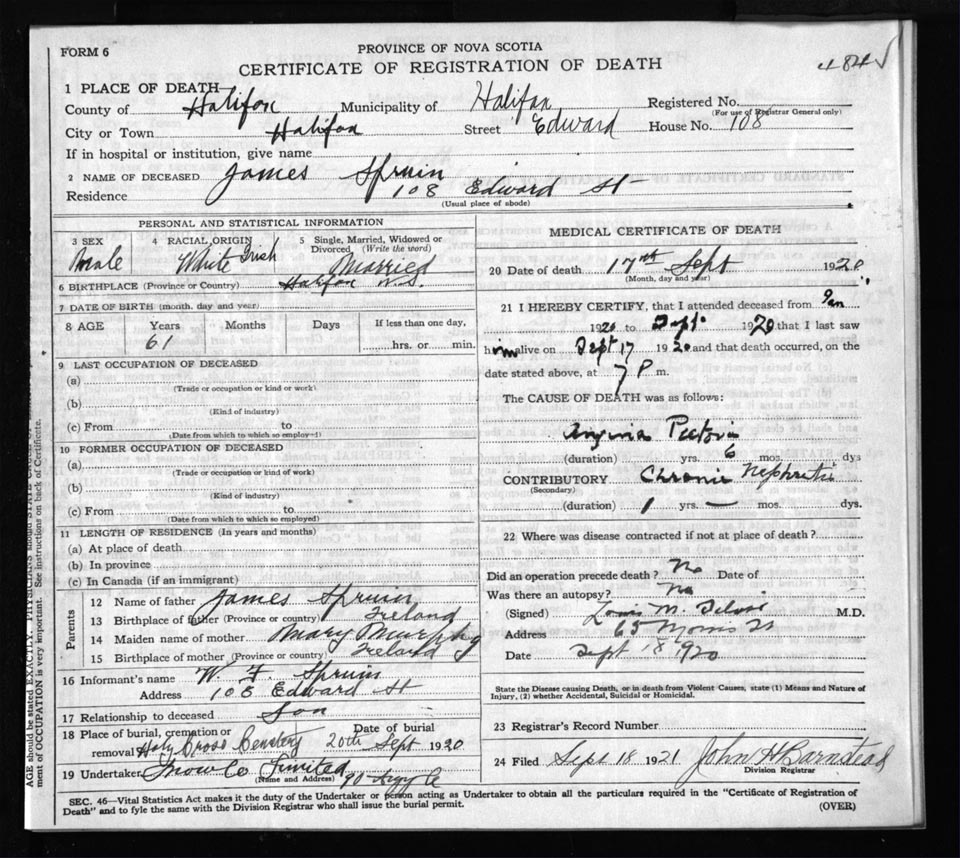 FORM 6
PROVINCE OF NOVA SCOTIA
CERTIFICATE OF REGISTRATION OF DEATH
484
1 PLACE OF DEATH
County of Halifax Municipality of Halifax Registered No.
(For use of Registrar General only)
City or Town Halifax Street Edward House No. 108
If in hospital or institution, give name
2 NAME OF DECEASED James Spruin
Residence 108 Edward St
(Usual place of abode)
PERSONAL AND STATISTICAL INFORMATION
3 SEX 4 RACIAL ORIGIN 5 Single, Married, Widowed or Divorced (Write the word)
Male White Irish Married
6 BIRTHPLACE (Province or Country) Halifax N.S.
7 DATE OF BIRTH (month, day, and year)
8 AGE Years Months Days If less than one day,
61 hrs. or min.
9 LAST OCCUPATION OF DECEASED
(a)
(Trade or occupation or kind or work)
(b)
(Kind of industry)
(c) From to
(Date from which to which so employed)
10 FORMER OCCUPATION OF DECEASED
(a)
(Trade or occupation or kind of work)
(b)
(Kind of industry)
(c) From to
(Date from which to which so employed)
11 LENGTH OF RESIDENCE (In years and months)
(a) At place of death
(b) In province
(c) In Canada (if an immigrant)
Parents
12 Name of father James Spruin
13 Birthplace of father (Province or country) Ireland
14 Maiden name of mother Mary Murphy
15 Birthplace of mother (Province or country) Ireland
16 Informant's name W. F. Spruin
Address 108 Edward St
17 Relationship to deceased Son
18 Place of burial, cremation or Date of burial
removal Holy Cross Cemetery 20th Sept 1920
19 Undertaker Snow Co Limited 90 Argyle
(Name and Address)
MEDICAL CERTIFICATE OF DEATH
20 Date of death 17th Sept 1920
(Month, day and year)
21 I HEREBY CERTIFY, that I attended deceased from Jan
1920 to Sept. 1920 that I last saw
him alive on Sept 17 1920 and that death occurred, on the
date stated above, at 7 P m.
The CAUSE OF DEATH was as follows:
Angina Pectoris
(duration) yrs. 6 mos. dys
CONTRIBUTORY Chronic Nephritis
(Secondary)
(duration) 1 yrs. — mos. dys.
22 Where was disease contracted if not at place of death?
Did an operation precede death? No Date of
Was there an autopsy? No
(Signed) Louis M. Silver M.D.
Address 65 Morris St
Date Sept 18 1920
State the Disease causing Death, or in death from Violent Causes, state (1) Means and Nature of
Injury, (2) whether Accidental, Suicidal or Homicidal.
23 Registrar's Record Number
24 Filed Sept 18 1921 John H Barnstead
Division Registrar
SEC. 46—Vital Statistics Act makes it the duty of the Undertaker or person acting as Undertaker to obtain all the particulars required in the "Certificate of Registration of
Death" and to fyle the same with the Division Registrar who shall issue the burial permit.
(OVER)